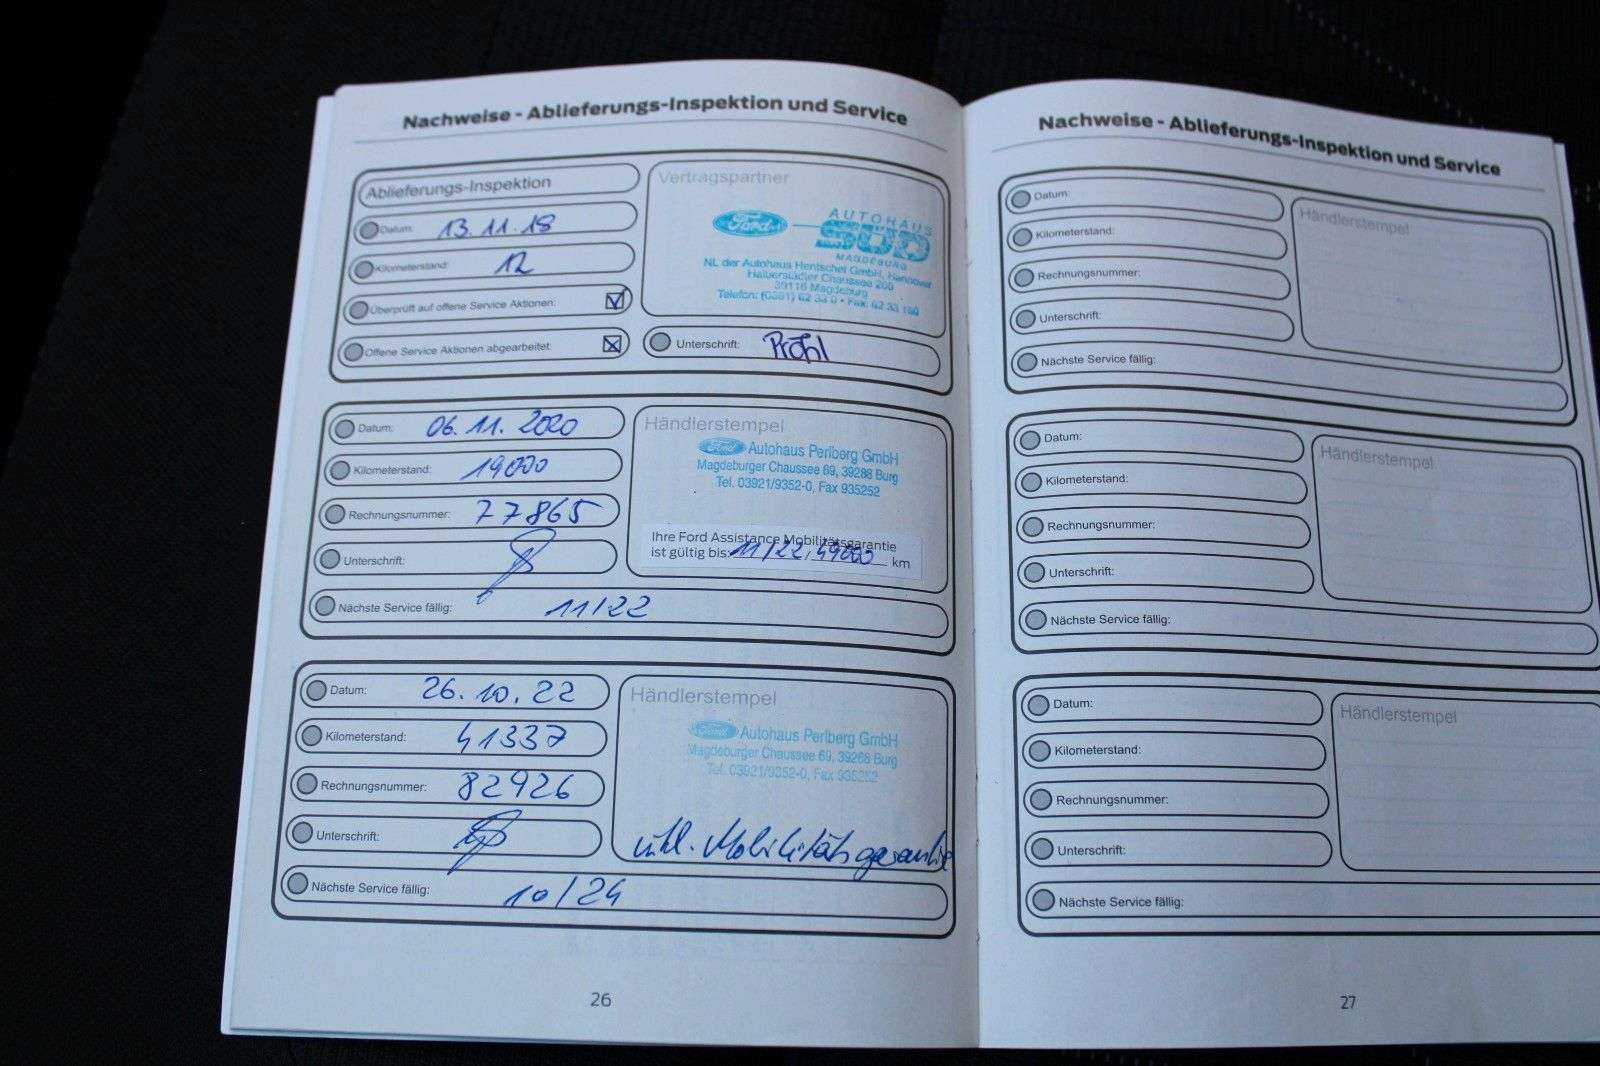 Nachweise - Ablieferungs-Inspektion und Service
Ablieferungs-Inspektion
Datum: 13.11.18
Kilometerstand: 12
Überprüft auf offene Service Aktionen:
Offene Service Aktionen abgearbeitet:
Vertragspartner
Ford AUTOHAUS
SÜD
MAGDEBURG
NL der Autohaus Hentschel GmbH, Hannover
Halberstädter Chaussee 200
39116 Magdeburg
Telefon: (0391) 62 33 0 • Fax: 62 33 180
Unterschrift: Pröhl
Datum: 06.11.2020
Kilometerstand: 19000
Rechnungsnummer: 77865
Unterschrift:
Nächste Service fällig: 11/22
Händlerstempel
Ford Autohaus Perlberg GmbH
Magdeburger Chaussee 69, 39288 Burg
Tel. 03921/9352-0, Fax 935252
Ihre Ford Assistance Mobilitätsgarantie
ist gültig bis: 11/22, 49000 km
Datum: 26.10.22
Kilometerstand: 41337
Rechnungsnummer: 82926
Unterschrift:
Nächste Service fällig: 10/24
Händlerstempel
Ford Autohaus Perlberg GmbH
Magdeburger Chaussee 69, 39288 Burg
Tel. 03921/9352-0, Fax 935252
inkl. Mobilitätsgarantie
26
Nachweise - Ablieferungs-Inspektion und Service
Datum:
Kilometerstand:
Rechnungsnummer:
Unterschrift:
Nächste Service fällig:
Händlerstempel
Datum:
Kilometerstand:
Rechnungsnummer:
Unterschrift:
Nächste Service fällig:
Händlerstempel
Datum:
Kilometerstand:
Rechnungsnummer:
Unterschrift:
Nächste Service fällig:
Händlerstempel
27